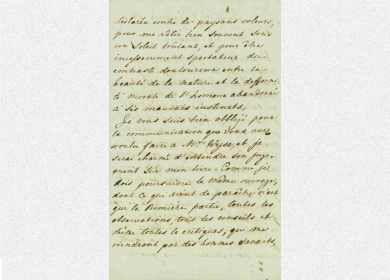 contre de paysans voleurs,
pour me rôtir bien souvent sous
un soleil brûlant, et pour être
incessamment spectateur du
contraste douloureux entre la
beauté de la nature et la difformi
té morale de l'homme abandonné
à ses mauvais instincts.
Je vous suis bien obligé pour
la communication que vous avez
voulu faire à Mr. Wyse, et je
serai charmé d'entendre son juge
ment sur mon livre. Comme je
dois poursuivre le même ouvrage,
dont ce qui vient de paraître n'est
que la première partie, toutes les
observations, tous les conseils et
même toutes les critiques, qui me
viendront par des hommes savants,